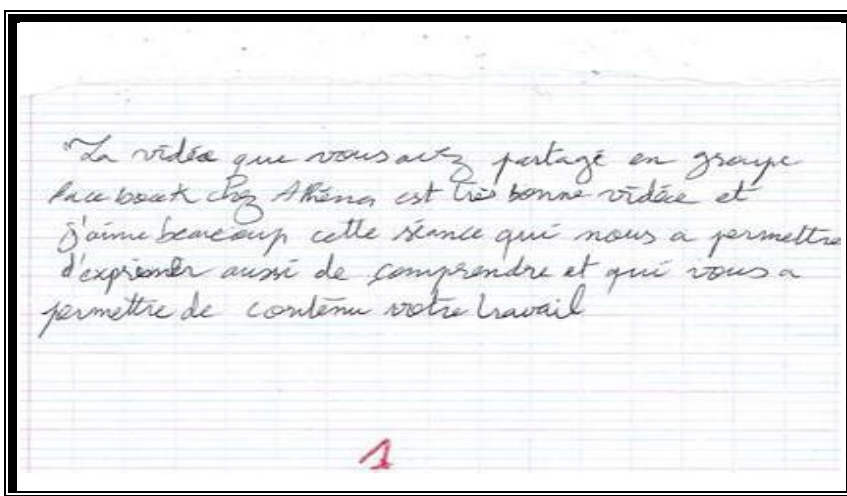 "La vidéo que vous avez partagé en groupe
Face book chez Athéna est très bonne vidéo et
j'aime beaucoup cette séance qui nous a permettre
d'exprimer aussi de comprendre et qui vous a
permettre de contenu votre travail
1